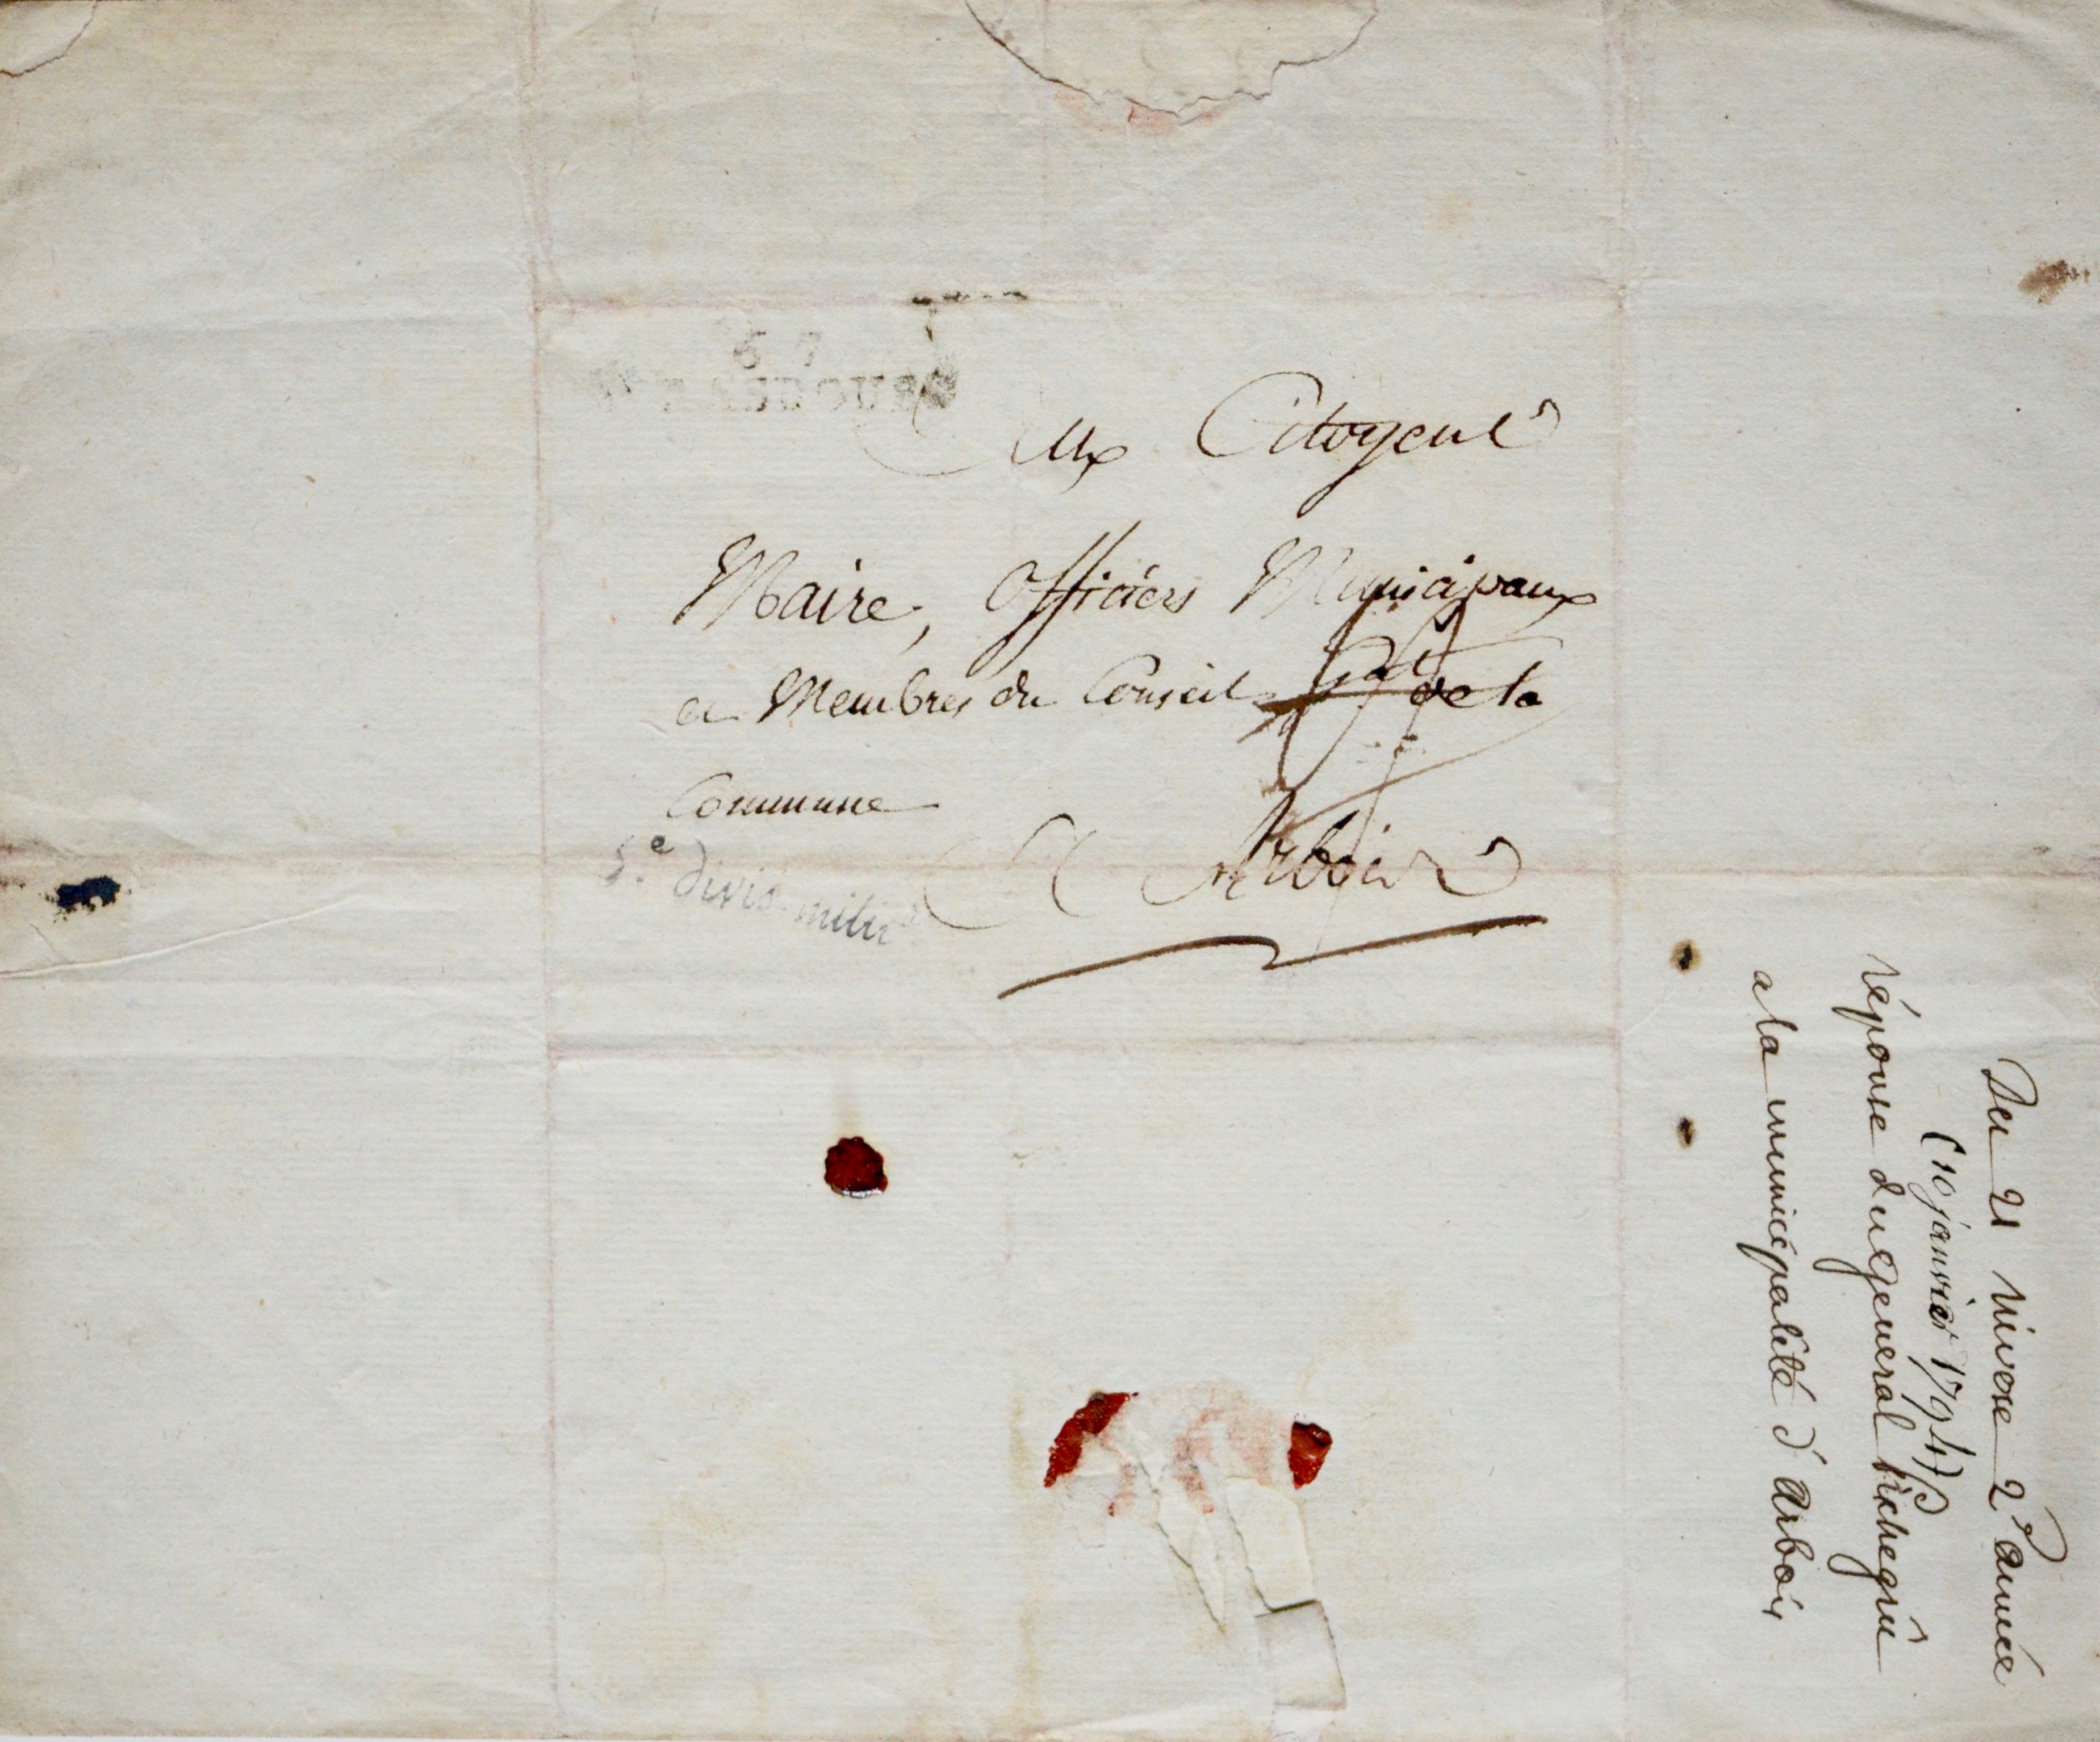 67
Aux Citoyens
Maire, Officiers Municipaux
et Membres du Conseil Gal de la
Commune
A Arbois
5.e divis. milit.
Du 21 Nivose 2e année
(10 janvier 1794)
réponse du général Pichegru
a la municipalité d'Arbois